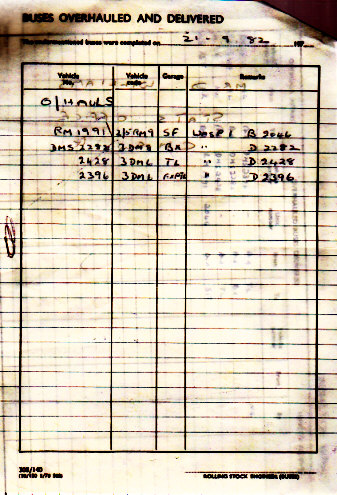 BUSES OVERHAULED AND DELIVERED
buses were completed on 21-9-82 197
Vehicle No. Vehicle code Garage Remarks
O/HAULS
RM 1991 2/5RM9 SF WASP 1 B 2046
DMS 2282 3DM8 BX " D 2282
2428 3DM6 TL " D 2428
2396 3DM6 " D 2396
308/140
ROLLING STOCK ENGINEER (BUSES)